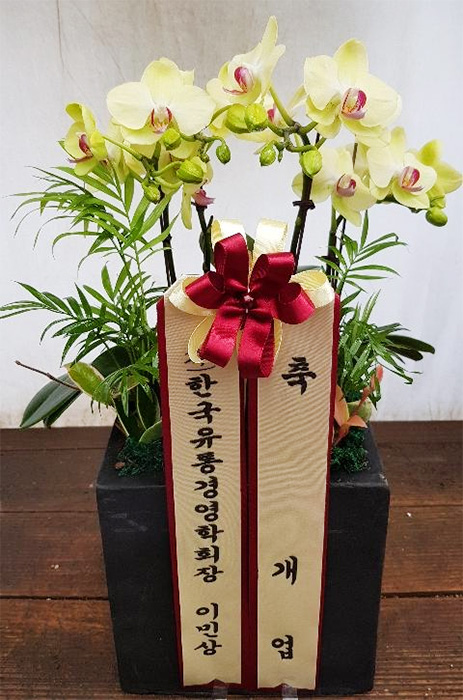 축 개업
한국유통경영학회장 이민상